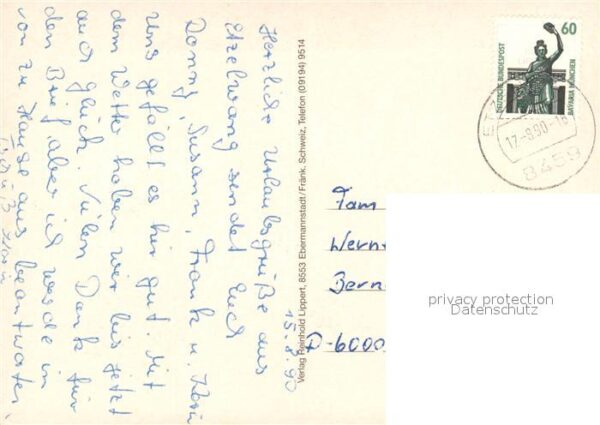 15.8.90
Herzliche Urlaubsgrüße aus
Etzelwang sendet Euch
Donny, Susann, Frank u. Karin
Uns gefällt es hier gut. Mit
dem Wetter haben wir bis jetzt
auch Glück. Vielen Dank für
den Brief, aber ich werde ihn
von zu Hause aus beantworten
Gruß Karin
Verlag Reinhold Lippert, 8553 Ebermannstadt/Fränk. Schweiz, Telefon (09194) 9514
60
DEUTSCHE BUNDESPOST
BAVARIA MÜNCHEN
17.-8.90-1
8459
Fam
Wern
Bern
D-6000
privacy protection
Datenschutz